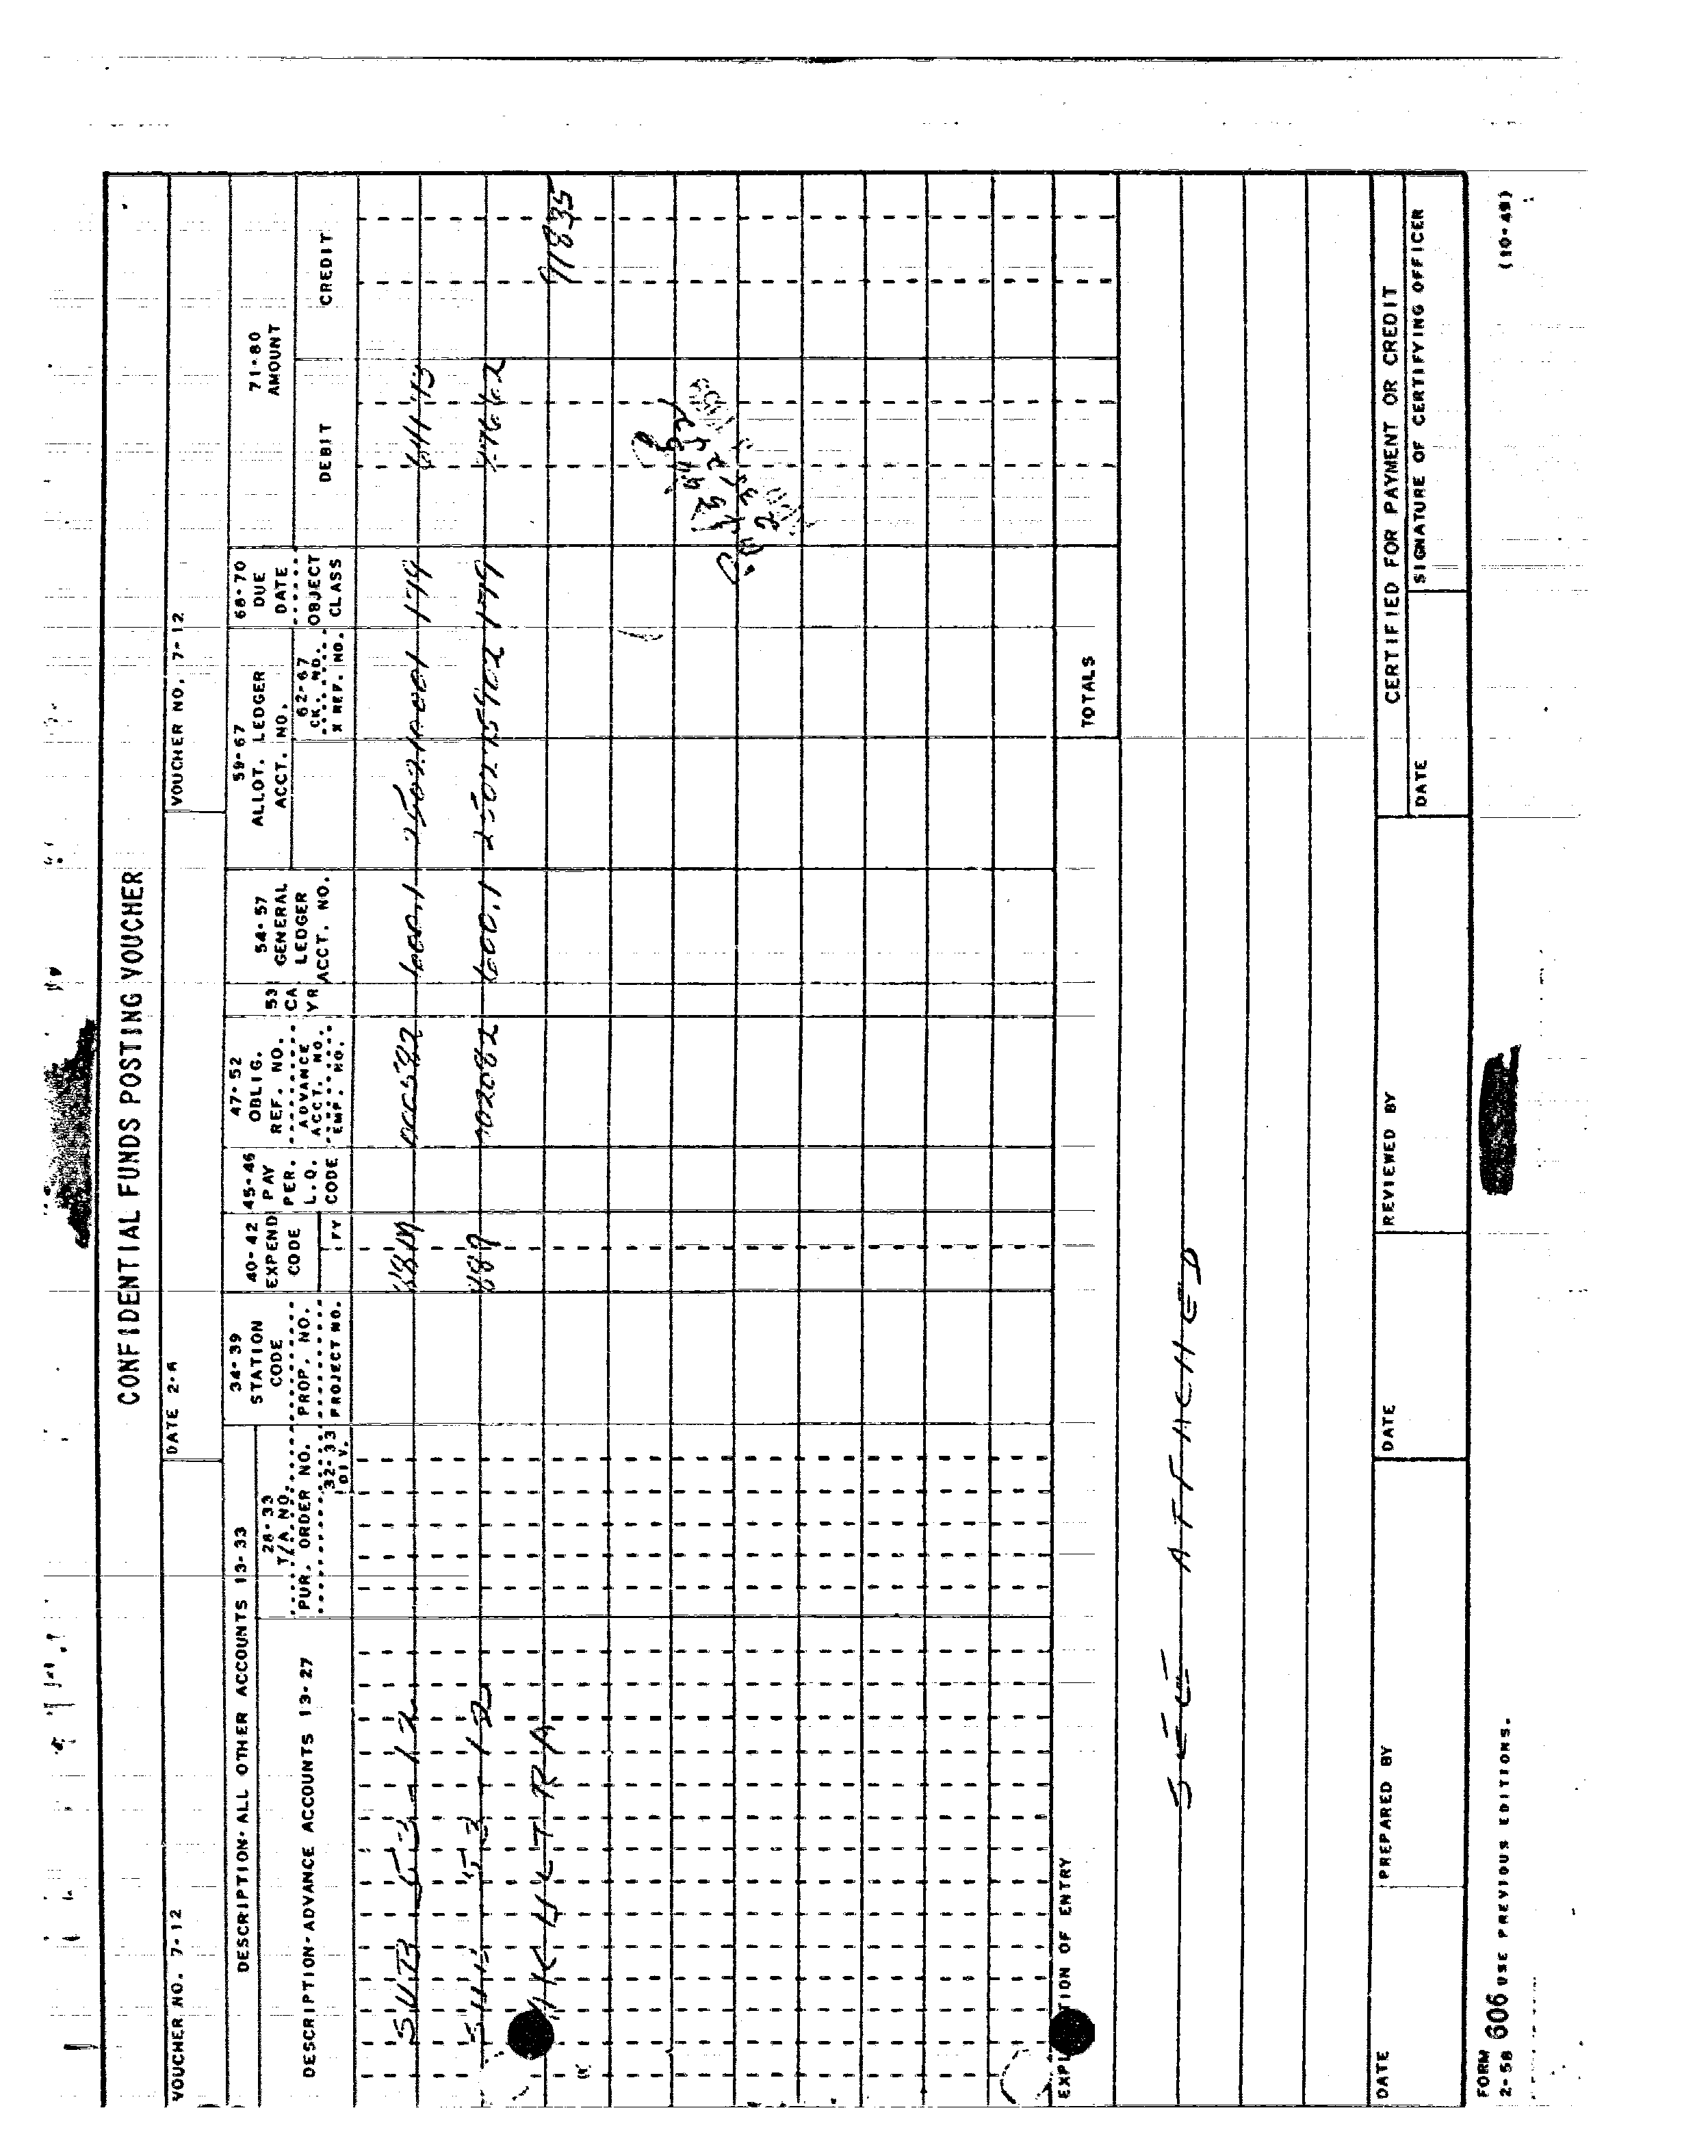 CONFIDENTIAL FUNDS POSTING VOUCHER
VOUCHER NO. 7-12
DATE 2-6
VOUCHER NO. 7-12
DESCRIPTION-ALL OTHER ACCOUNTS 13-33
DESCRIPTION-ADVANCE ACCOUNTS 13-27
28-33
T/A NO.
PUR. ORDER NO.
32-33
DIV.
34-39
STATION
CODE
PROP. NO.
PROJECT NO.
40-42
EXPEND
CODE
FY
45-46
PAY
PER.
L.Q.
CODE
47-52
OBLIG.
REF. NO.
ADVANCE
ACCT. NO.
EMP. NO.
53
CA
YR
54-57
GENERAL
LEDGER
ACCT. NO.
59-67
ALLOT. LEDGER
ACCT. NO.
62-67
CK. NO.
X REF. NO.
68-70
DUE
DATE
OBJECT
CLASS
71-80
AMOUNT
DEBIT
CREDIT
SUB 53-12
600.1
179
SUB 53-12
600.1
179
MKULTRA
91835
TOTALS
EXPLANATION OF ENTRY
SEE ATTACHED
DATE
PREPARED BY
DATE
REVIEWED BY
CERTIFIED FOR PAYMENT OR CREDIT
DATE
SIGNATURE OF CERTIFYING OFFICER
FORM
2-58 606 USE PREVIOUS EDITIONS.
(10-49)